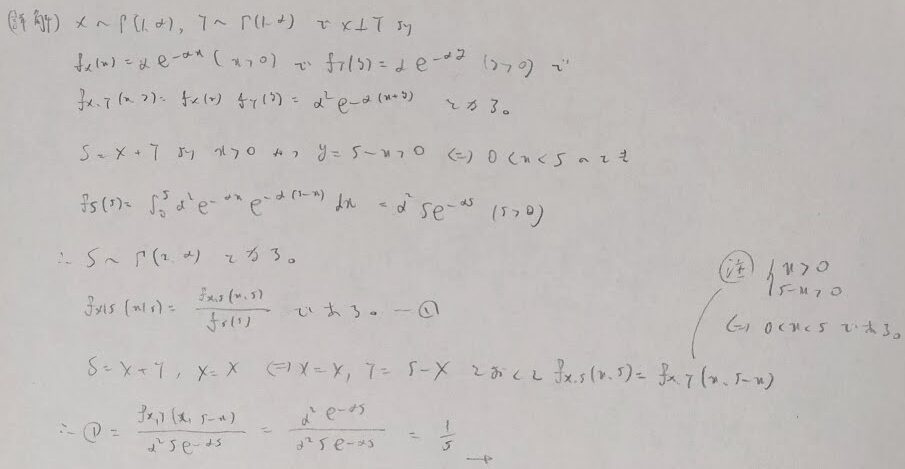 (詳解) X ~ Γ(1, α), Y ~ Γ(1, α) で X⊥Y より
f_X(x) = α e^{-αx} (x>0) で f_Y(y) = α e^{-αy} (y>0) で
f_{X,Y}(x,y) = f_X(x) f_Y(y) = α² e^{-α(x+y)} となる。
S = X + Y より x>0 かつ y = s-x>0 ⇔ 0<x<s のとき
f_S(s) = ∫_0^s α² e^{-αx} e^{-α(s-x)} dx = α² s e^{-αs} (s>0)
∴ S ~ Γ(2, α) となる。
f_{X|S}(x|s) = f_{X,S}(x,s) / f_S(s) である。 —①
注 { x>0
s-x>0
⇔ 0<x<s である。
S = X + Y, X = X ⇔ X = X, Y = S - X とおくと f_{X,S}(x,s) = f_{X,Y}(x, s-x)
∴ ① = f_{X,Y}(x, s-x) / α² s e^{-αs} = α² e^{-αs} / α² s e^{-αs} = 1/s →